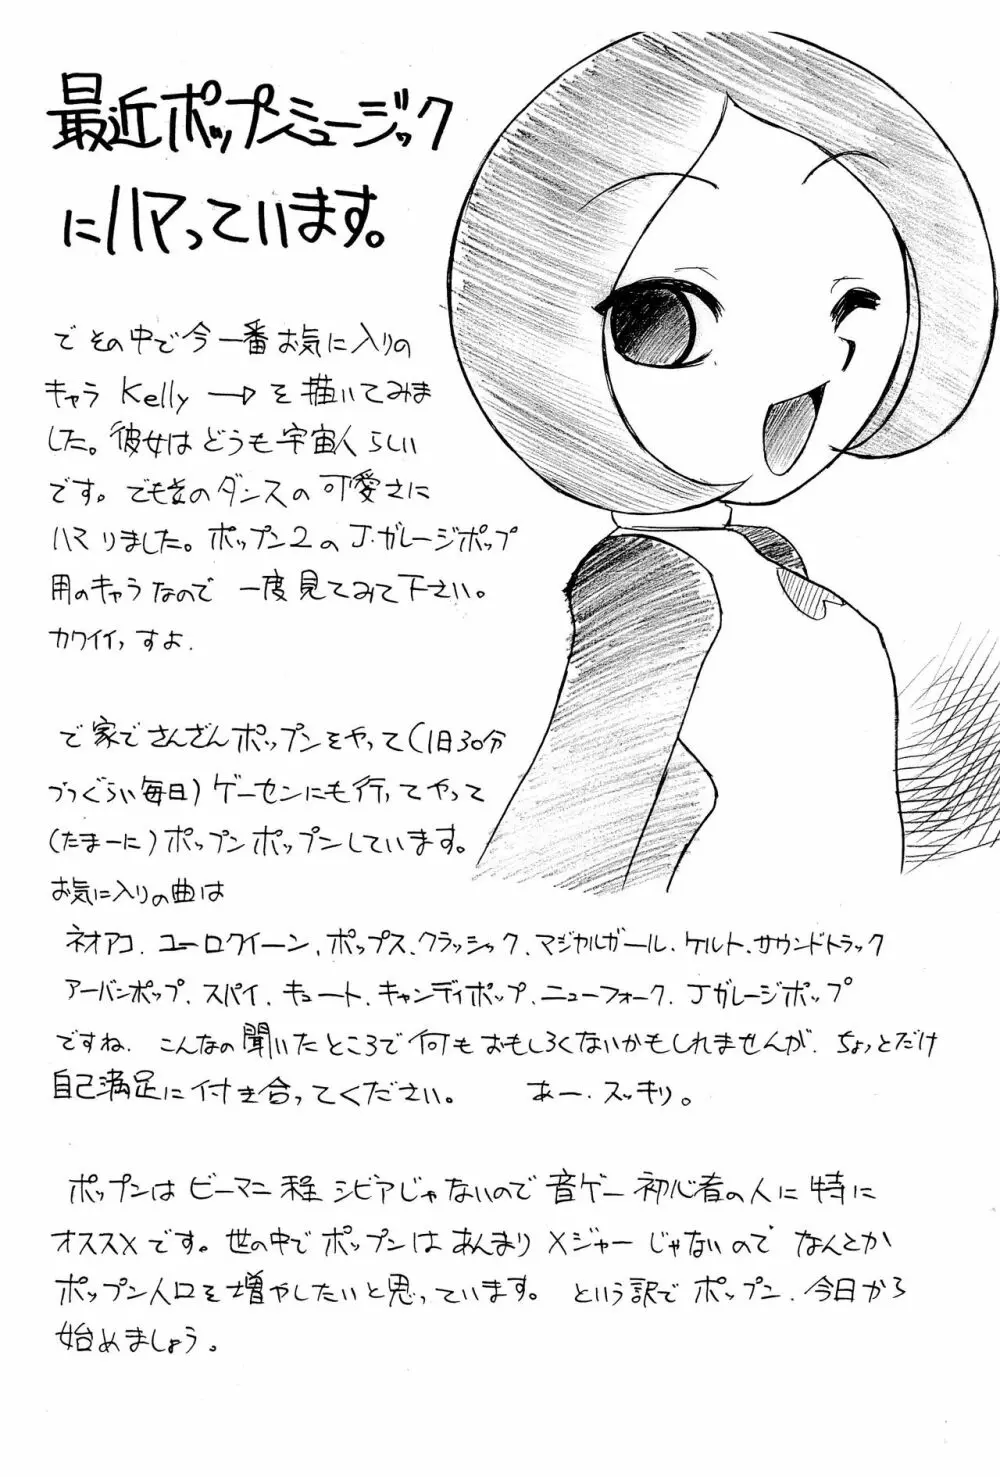 最近ポップンミュージック
にハマっています。
でその中で今一番お気に入りの
キャラ Kelly → を描いてみま
した。彼女はどうも宇宙人らしい
です。でも女のダンスの可愛さに
ハマりました。ポップン2のJ・ガレージポップ
用のキャラなので 一度見てみて下さい。
カワイイっすよ.
で家でさんざんポップンをやって(1日30分
づつぐらい毎日)ゲーセンにも行ってやって
(たまーに)ポップンポップンしています。
お気に入りの曲は
ネオアコ、ユーロクイーン、ポップス、クラッシック、マジカルガール、ケルト、サウンドトラック
アーバンポップ、スパイ、キュート、キャンディポップ、ニューフォーク、Jガレージポップ
ですね. こんなの聞いたところで何もおもしろくないかもしれませんが、ちょっとだけ
自己満足に付き合ってください。 あー、スッキリ。
ポップンはビーマニ程シビアじゃないので音ゲー初心者の人に特に
オススメです。世の中でポップンはあんまりメジャーじゃないのでなんとか
ポップン人口を増やしたいと思っています。 という訳でポップン、今日から
始めましょう。